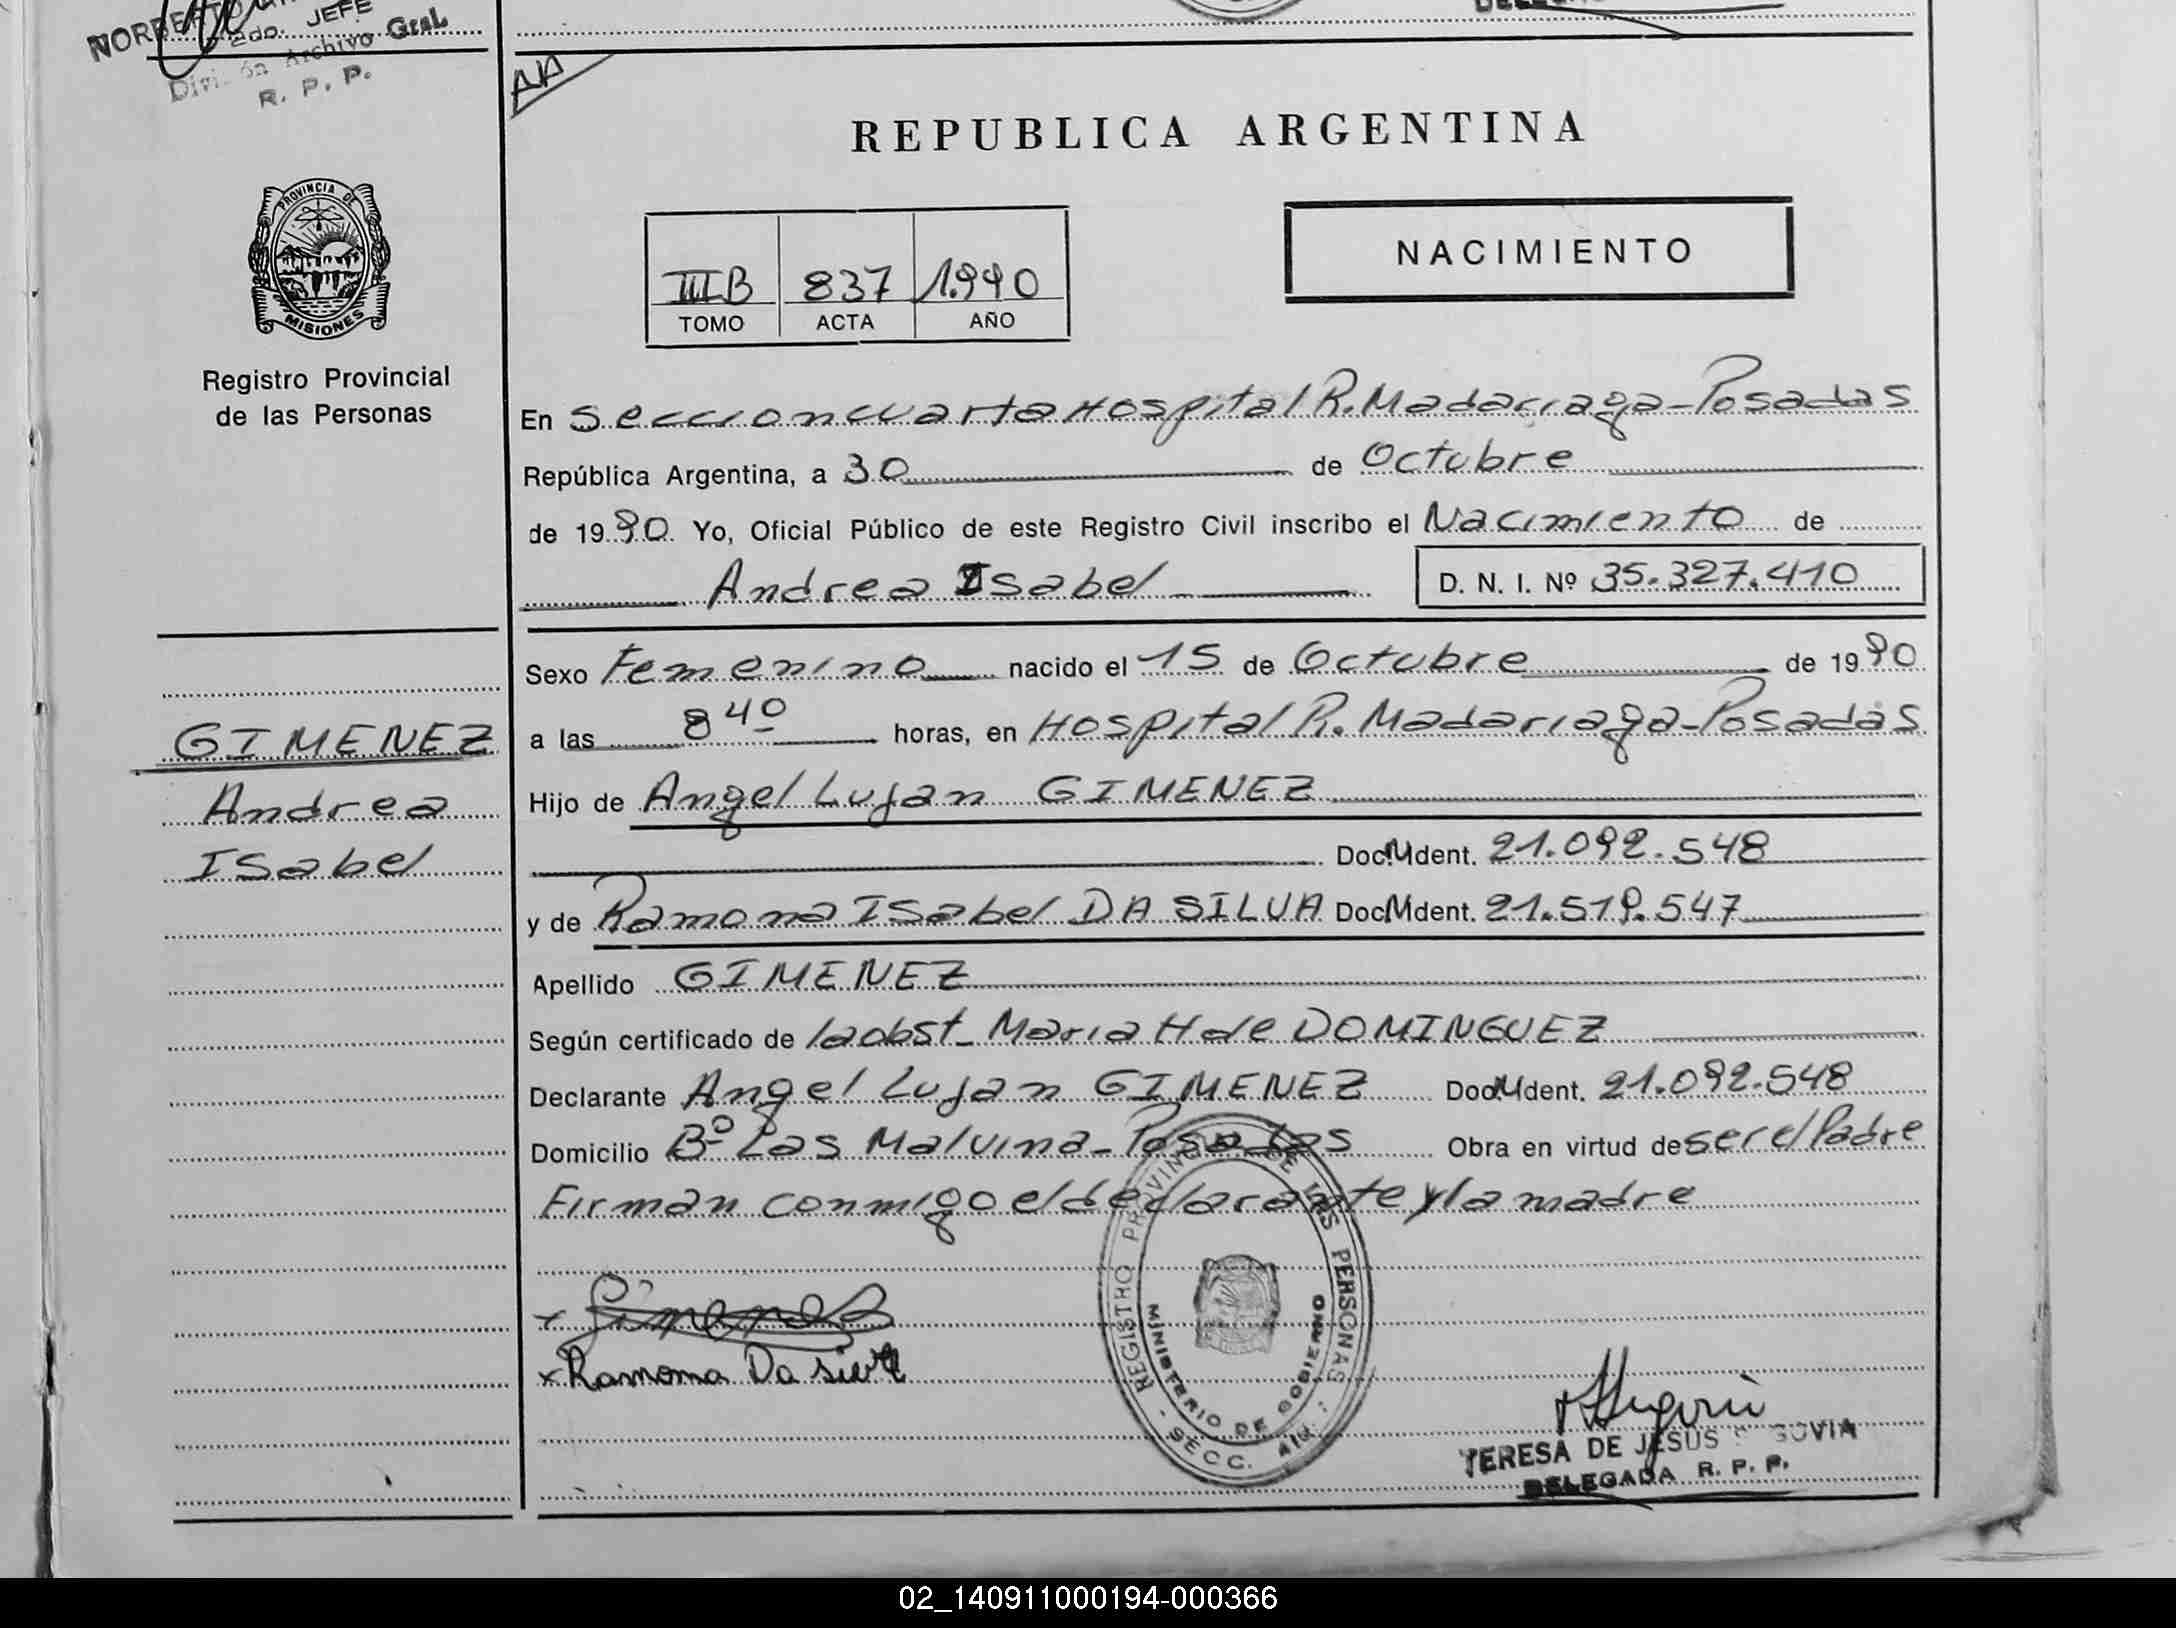 JEFE
División Archivo Gral.
R. P. P.
AA
REPUBLICA ARGENTINA
PROVINCIA DE
MISIONES
Registro Provincial
de las Personas
III B 837 1.990
TOMO ACTA AÑO
NACIMIENTO
En Seccion cuarta Hospital R. Madariaga - Posadas
República Argentina, a 30 de Octubre
de 1990 Yo, Oficial Público de este Registro Civil inscribo el Nacimiento de
Andrea Isabel D. N. I. Nº 35.327.410
Sexo Femenino nacido el 15 de Octubre de 1990
a las 8 40 horas, en Hospital R. Madariaga - Posadas
Hijo de Angel Lujan GIMENEZ
Doc. M Ident. 21.092.548
y de Ramona Isabel DA SILVA Doc. M Ident. 21.519.547
Apellido GIMENEZ
Según certificado de la obst. Maria H de DOMINGUEZ
Declarante Angel Lujan GIMENEZ Doc. M Ident. 21.092.548
Domicilio Bº Las Malvina - Posadas Obra en virtud de ser el Padre
Firman conmigo el declarante y la madre
GIMENEZ
Andrea
Isabel
x Gimenez
x Ramona Da silva
REGISTRO PROVINCIAL DE LAS PERSONAS
MINISTERIO DE GOBIERNO
- SECC. 4ta. -
TERESA DE JESUS SEGOVIA
DELEGADA R. P. P.
02_140911000194-000366